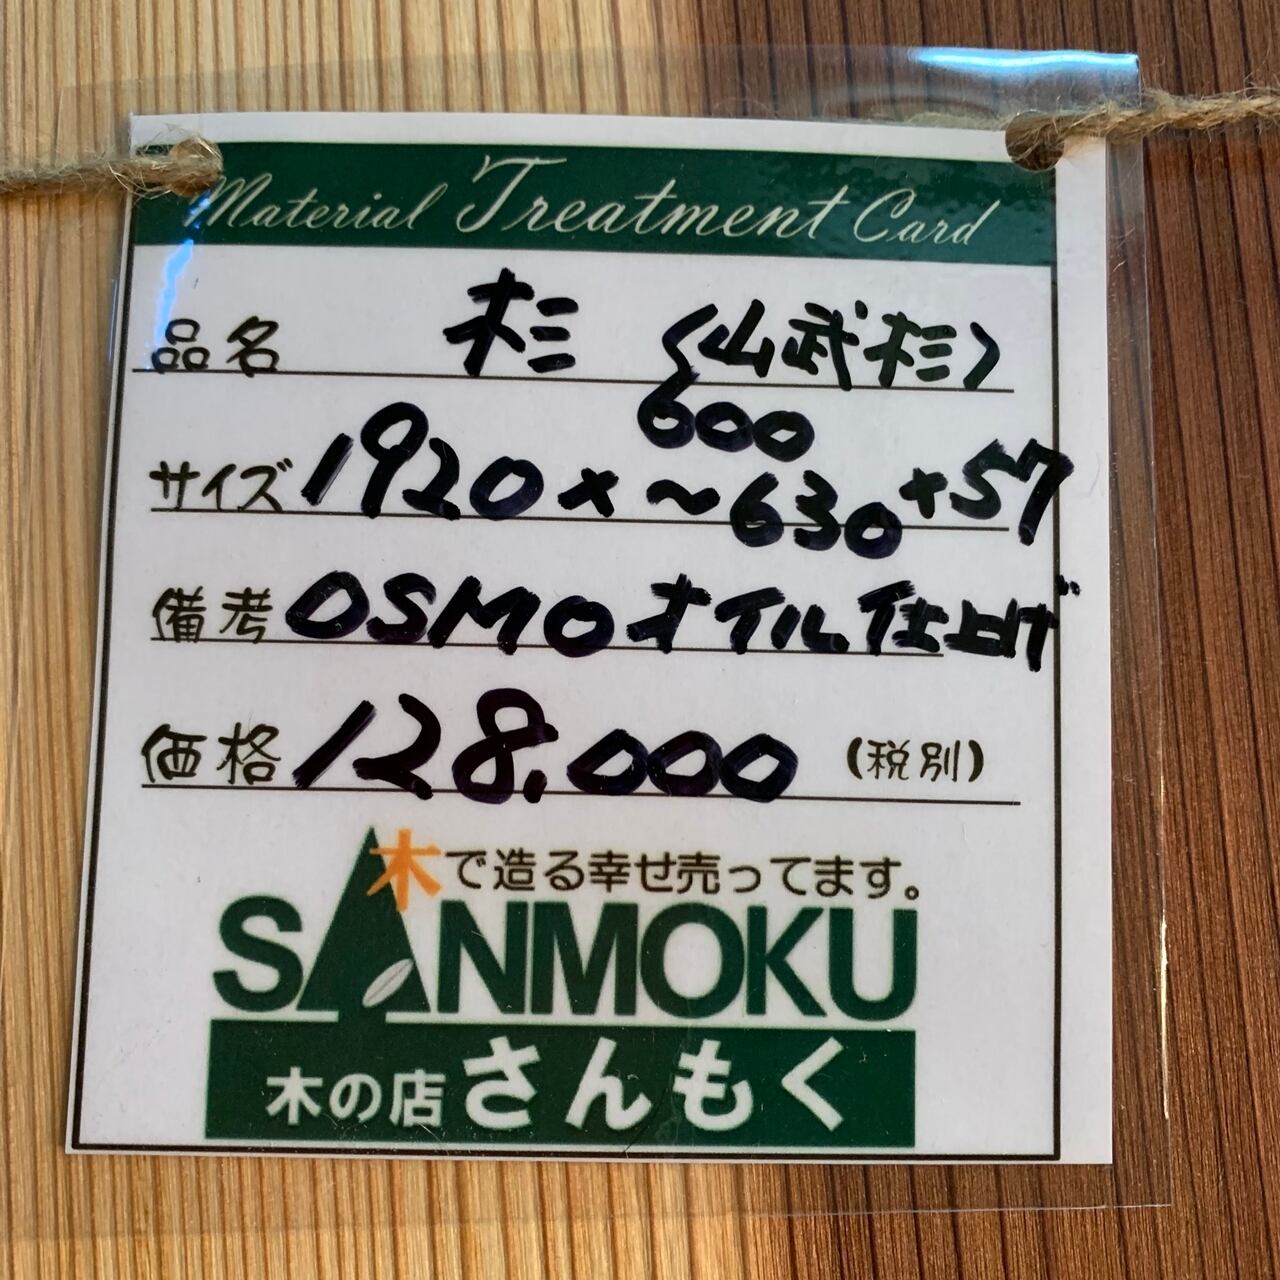 Material Treatment Card
品名 杉 (山武杉)
600
サイズ 1920×~630×57
備考 OSMOオイル仕上げ
価格 128,000 (税別)
木で造る幸せ売ってます。
SANMOKU
木の店さんもく